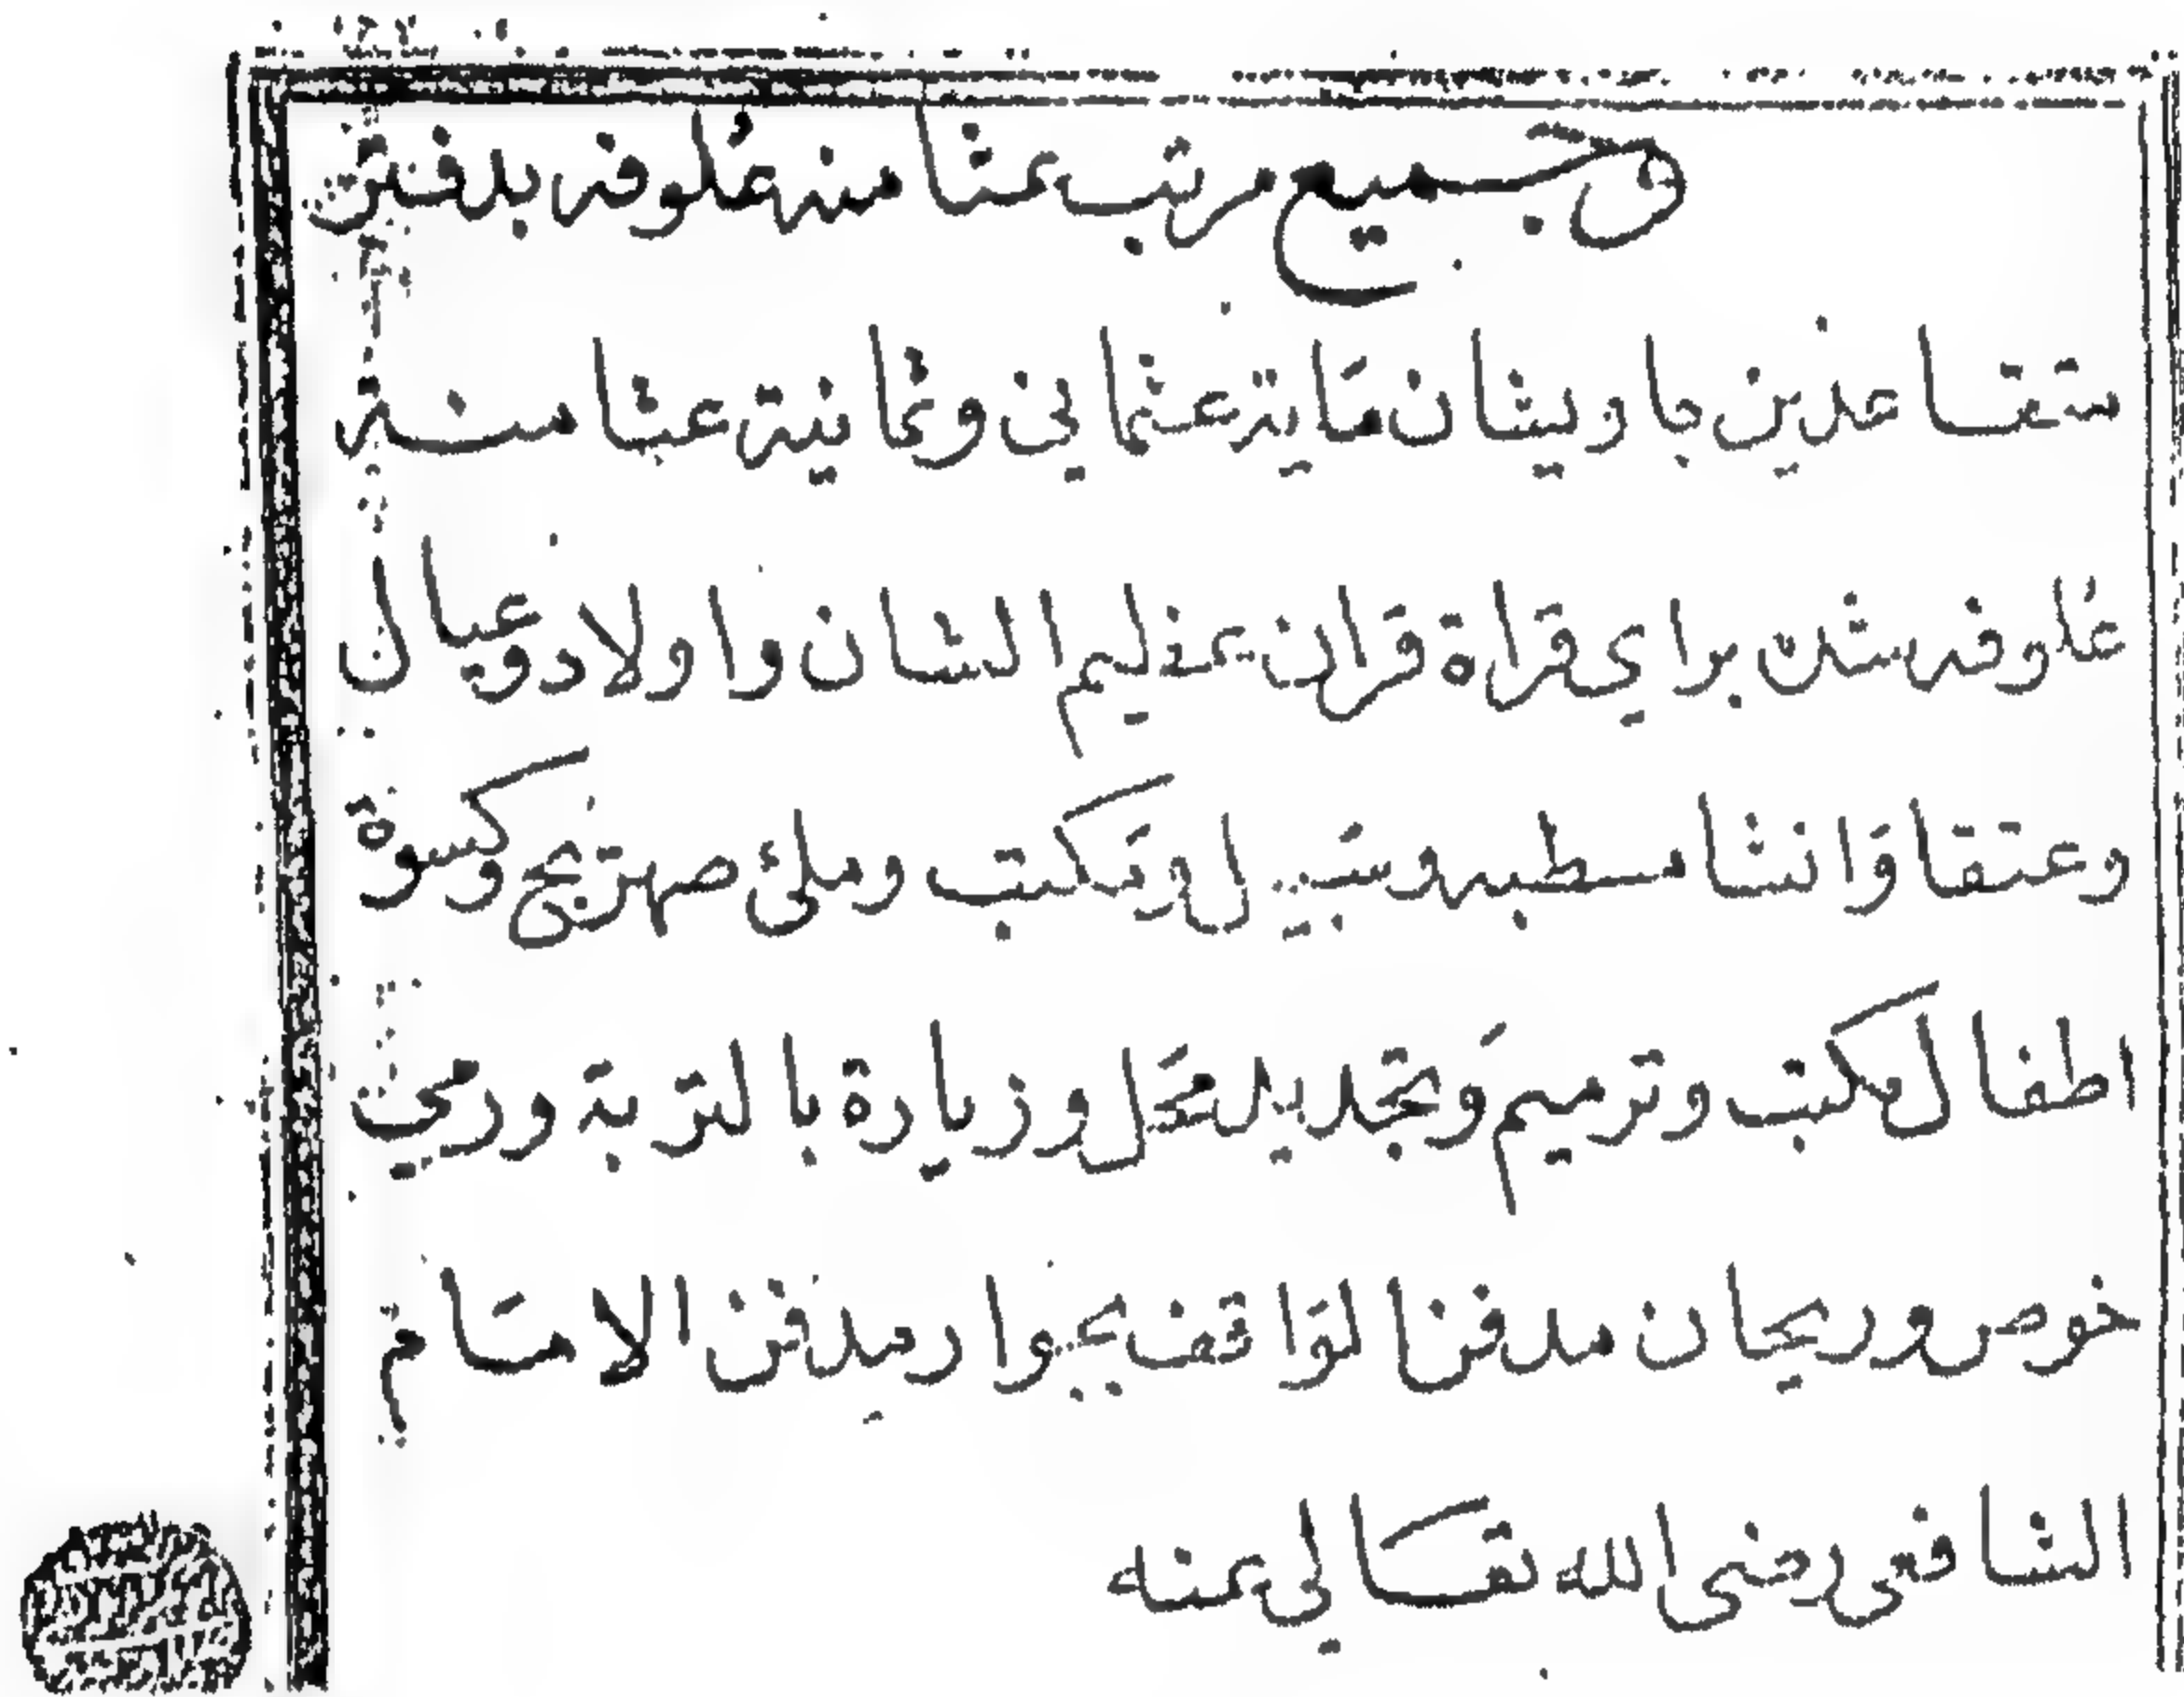 وجميع مرتب عثا منه علوفه بدفتر
متقاعدين جاويشان مماية عثماني وثمانية عثامنة
علوفه شد براي قراة قران عظيم الشان واولاد وعيال
وعتقا وانشا مسطبه وسبيل ومكتب وملئ صهريج وكسوة
اطفال مكتب وترميم وتجديد محل وزيارة بالتربة ورمي
خوص وريحان مدفن الواقف بجوار مدفن الامام
الشافعى رضى الله تعالي عنه